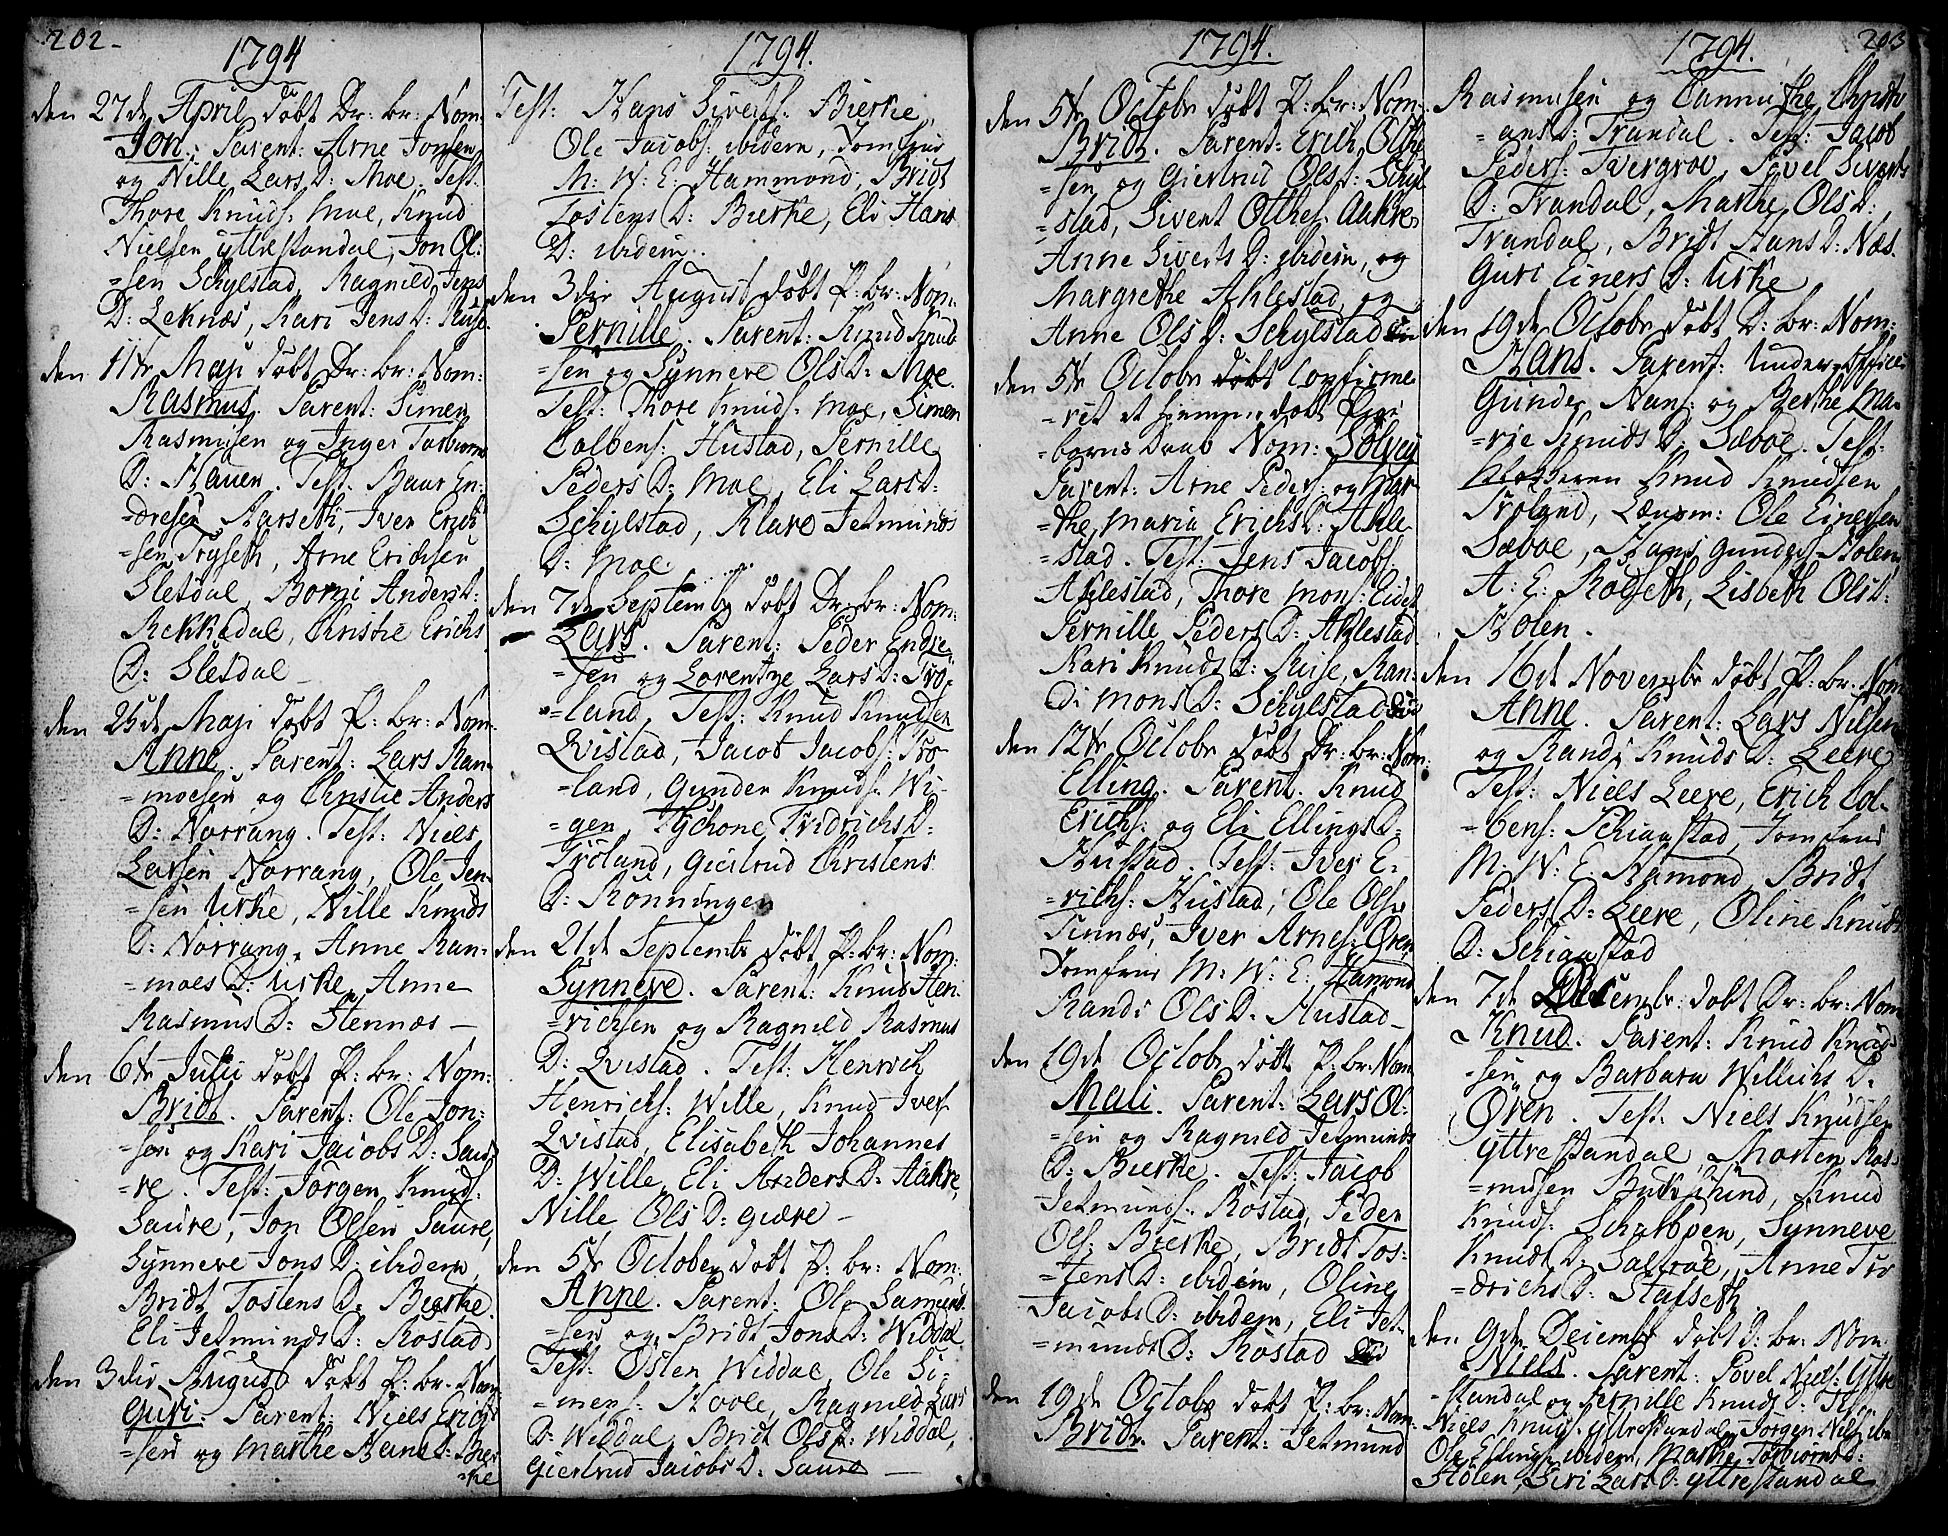 202-
1794
den 27de April døbt Dr: br: Nom:
Jon. Parent: Arne Jonsen
og Nille Lars D: Moe, Test:
Thore Knuds: Moe, Knud
Nielsen Yttrestandal, Jon Ol:
=sen Schylstad, Ragnild Jens
D: Leknæs, Kari Jens D:
den 11te Maji døbt Dr: br: Nom:
Rasmus. Parent: Simen
Rasmusen og Inger Torbiørns
D: Hauen. Test: Baar En=
=dresen Aarseth, Iver Erich
=sen Tryseth, Arne Erichsen
Sletdal, Borni Anders D:
Rekkedal, Christie Erichs
D: Sletdal
den 25de Maji døbt P: br: Nom:
Anne. Parent: Lars Ran=
=moesen og Christie Anders
D: Norrang. Test: Niels
Larsen Norrang, Ole Jen=
=sen Urke, Nille Knuds
D: Norrang, Anne Ran=
=moes D: Urke, Anne
Rasmus D: Stennæs —
den 6te Julii døbt P: br: Nom:
Bridt. Parent: Ole Jon=
=sen og Kari Jacobs D: Sau=
=re. Test: Jørgen Knuds:
Saure, Jon Olsen Saure,
Synneve Jons D: ibidem,
Bridt Tostens D: Bierke
Eli Jetmunds D: Rostad
den 3die August døbt P: br: Nom:
Guri: Parent: Niels Erich
=sen og Marthe Hans D: Bier
=ke
1794.
Test: Hans Siverts: Bierke,
Ole Jacobs: ibidem, Jomfrue
M: W: E: Hammond, Bridt
Tostens D: Bierke, Eli Hans
D: ibidem.
den 3die August døbt P: br: Nom:
Pernille. Parent: Knud Knud
=sen og Synneve Ols D: Moe.
Test: Thore Knuds: Moe, Simen
Colbens: Hustad, Pernille
Peders D: Moe, Eli Lars D:
Schylstad, Klare Jetmunds
D: Moe.
den 7de Septembr døbt Dr: br: Nom:
Lars. Parent: Peder Endre=
=sen og Lorentze Lars D: Trø=
=land, Test: Knud Knudsen
Qvistad, Jacob Jacobs: Trø
=land, Gunder Knuds: Wi=
=gen, Tychone Fridrichs D:
Trøland, Giertrud Christens
D: Rønningen
den 21de Septembr døbt P: br: Nom:
Synneve. Parent: Knud Hen=
=richsen og Ragnild Rasmus
D: Qvistad. Test: Henrich
Henrichs: Wille, Knud Ivers:
Qvistad, Elisabeth Johannes
D: Wille, Eli Anders D: Aakre,
Nille Ols D: Giære —
den 5te October døbt P: br: Nom:
Anne. Parent: Ole Samund
=sen og Bridt Jons D: Widdal
Test: Østen Widdal, Ole Si=
=mens: Hoole, Ragnild Lars
D: Widdal, Bridt Ols D: Widdal,
Giertrud Jacobs D: Saure —
1794.
den 5te Octobr døbt P: br: Nom:
Bridt. Parent: Erich Otthe
=sen og Giertrud Ols D: Schyl
=stad, Sivert Otthes: Aakre
Anne Siverts D: ibidem, og
Margrethe Ahlestad, og
Anne Ols D: Schylstad
den 5te Octobr døbt Confirme
=ret et hiemme døbt Pige
=barns Daab Nom: Solvey
Parent: Arne Peders: og Mar
=the Maria Erichs D: Ahle
=stad. Test: Jens Jacobs:
Ahlestad, Thore Mons: Eidet
Pernille Peders D: Ahlestad
Kari Knuds D: Ruse, Ran=
di Mons D: Schylstad
den 12te Octobr døbt Dr: br: Nom:
Elling. Parent. Knud
Erichs: og Eli Ellings D:
Hustad. Test: Iver E=
=richs: Hustad, Ole Ols:
Finnæs, Iver Arnes: Øren
Jomfrue M: W: E: Hamond
Randi Ols D: Hustad —
den 19de Octobr døbt P: br: Nom
Mali. Parent: Lars Ol=
=sen og Ragnild Jetmunds
D: Bierke. Test: Jacob
Jetmunds: Rostad, Peder
Ols: Bierke, Bridt Tos=
=tens D: ibidem, Oline
Jacobs D: ibidem, Eli Jet=
=munds D: Rostad
den 19de Octobr døbt P: br: Nom
Bridt. Parent: Jetmund
203
1794.
Rasmusen og Christi
=ans D: Trandal. Test: Jacob
Peders: Tvergrov, Povel Siverts
D: Trandal, Marthe Ols D:
Trandal, Bridt Hans D: Næs.
Guri Einers D: Urke
den 19de Octobr døbt D: br: Nom:
Hans. Parent: Under-Officer
Gunder Hans: og Berthe Ma=
=rie Knuds D: Sæbøe. Test:
Klokkeren Knud Knudsen
Trøland, Lænsm: Ole Einersen
Sæbøe, Hans Gunders: Holen
A: E: Rødseth, Lisbeth Ols D:
Holen.
den 16de Novembr døbt P: br: Nom
Anne. Parent: Lars Nilsen
og Randi Knuds D: Leere
Test: Niels Leere, Erich Col=
=bens: Schiaastad, Jomfrue
M: W: E: Hamond, Bridt
Peders D: Leere, Oline Knuds
D: Schiaastad
den 7de Decembr: døbt Dr: br: Nom
Knud. Parent: Knud Knud=
=sen og Barbara Willichs D:
Øren. Test: Niels Knudsen
Yttrestandal, Morten Ras=
=musen, Knud
Knuds:, Synneve
Knuds D:, Anne Fri
=drichs D: Stafseth
den 9de Decembr døbt D: br: Nom.
Niels. Parent: Povel Niels: Yttre
=standal og Pernille Knuds D: Test:
Niels Knuds: Yttrestandal, Jørgen Niels: ibid
Ole Ellings: ibidem, Marthe Torbiørns D:
Stølen, Siri Lars D: Yttrestandal